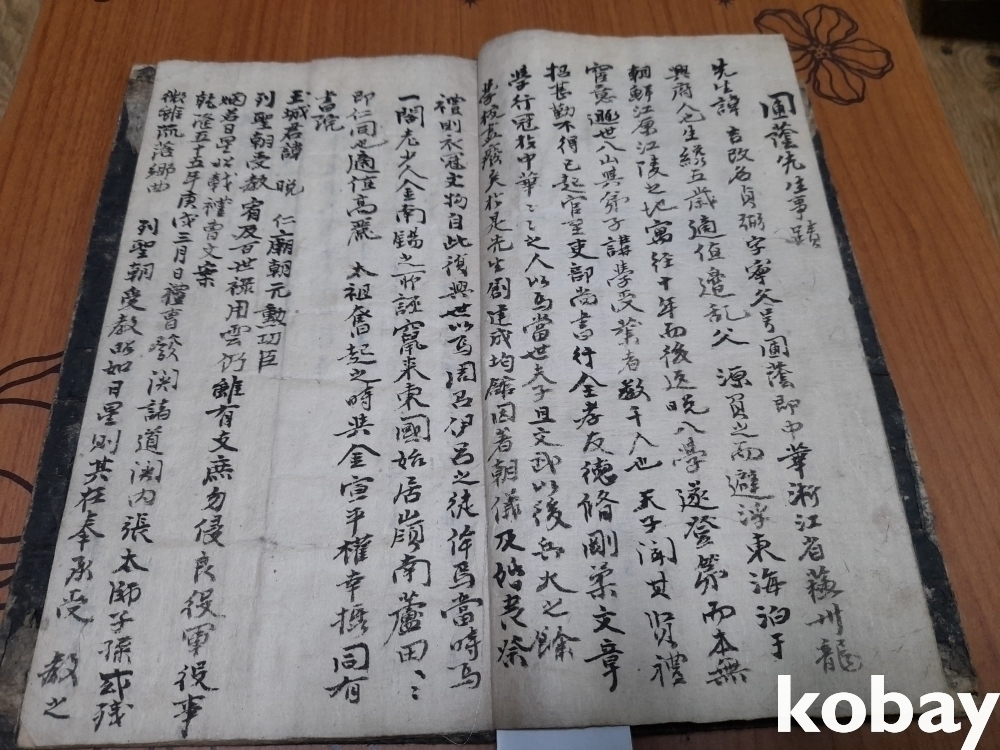 圃蔭先生事蹟
先生諱吉改名貞弼字寧父号圃蔭即中華淅江省蘇州龍
興府人也生纔五歲適值邊乱父 源負之而避浮東海泊于
朝鮮江原江陵之地寓經十年而後還 入學遂登第而本無
宦意遯世入山與弟子講學受業者數千人也 天子聞其賢禮
招甚勤不得已起官至吏部尚書行全孝友德脩剛柔文章
學行冠於中華〻〻之人以爲當世夫子且文武以後 火之餘
學校盡廢矣於是先生創建成均館因著朝儀及婚喪祭
禮則衣冠文物自此復興世以爲周召伊呂之徒 焉當時爲
一閣老少人金南錫之所誣竄來東國始居嶺南蘆田〻〻
即 同也適值高麗 太祖奮起之時與金宣平權幸 同有
書院
玉城君諱 晩 仁廟朝元勳功臣
列聖朝受教宥及百世 用雲仍雖有支庶勿侵良役軍役事
 若日星 載禮曹文案
乾隆五十五年庚戌三月日禮曹發関諸道関内張太師子孫或殘
微雖流落鄉曲 列聖朝受教昭如日星則其在奉承受 教之
kobay